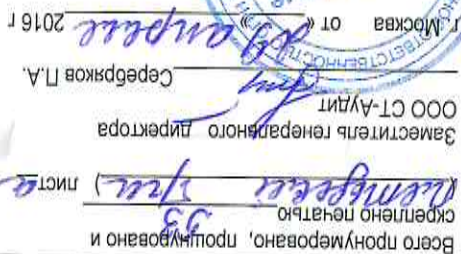 Всего пронумеровано, прошнуровано и
скреплено печатью 33
( три ) листа
Заместитель генерального директора
ООО СТ-Аудит
Серебряков П.А.
г. Москва от « 29 » апреля 2016 г
ОТВЕТСТВЕННОСТЬЮ